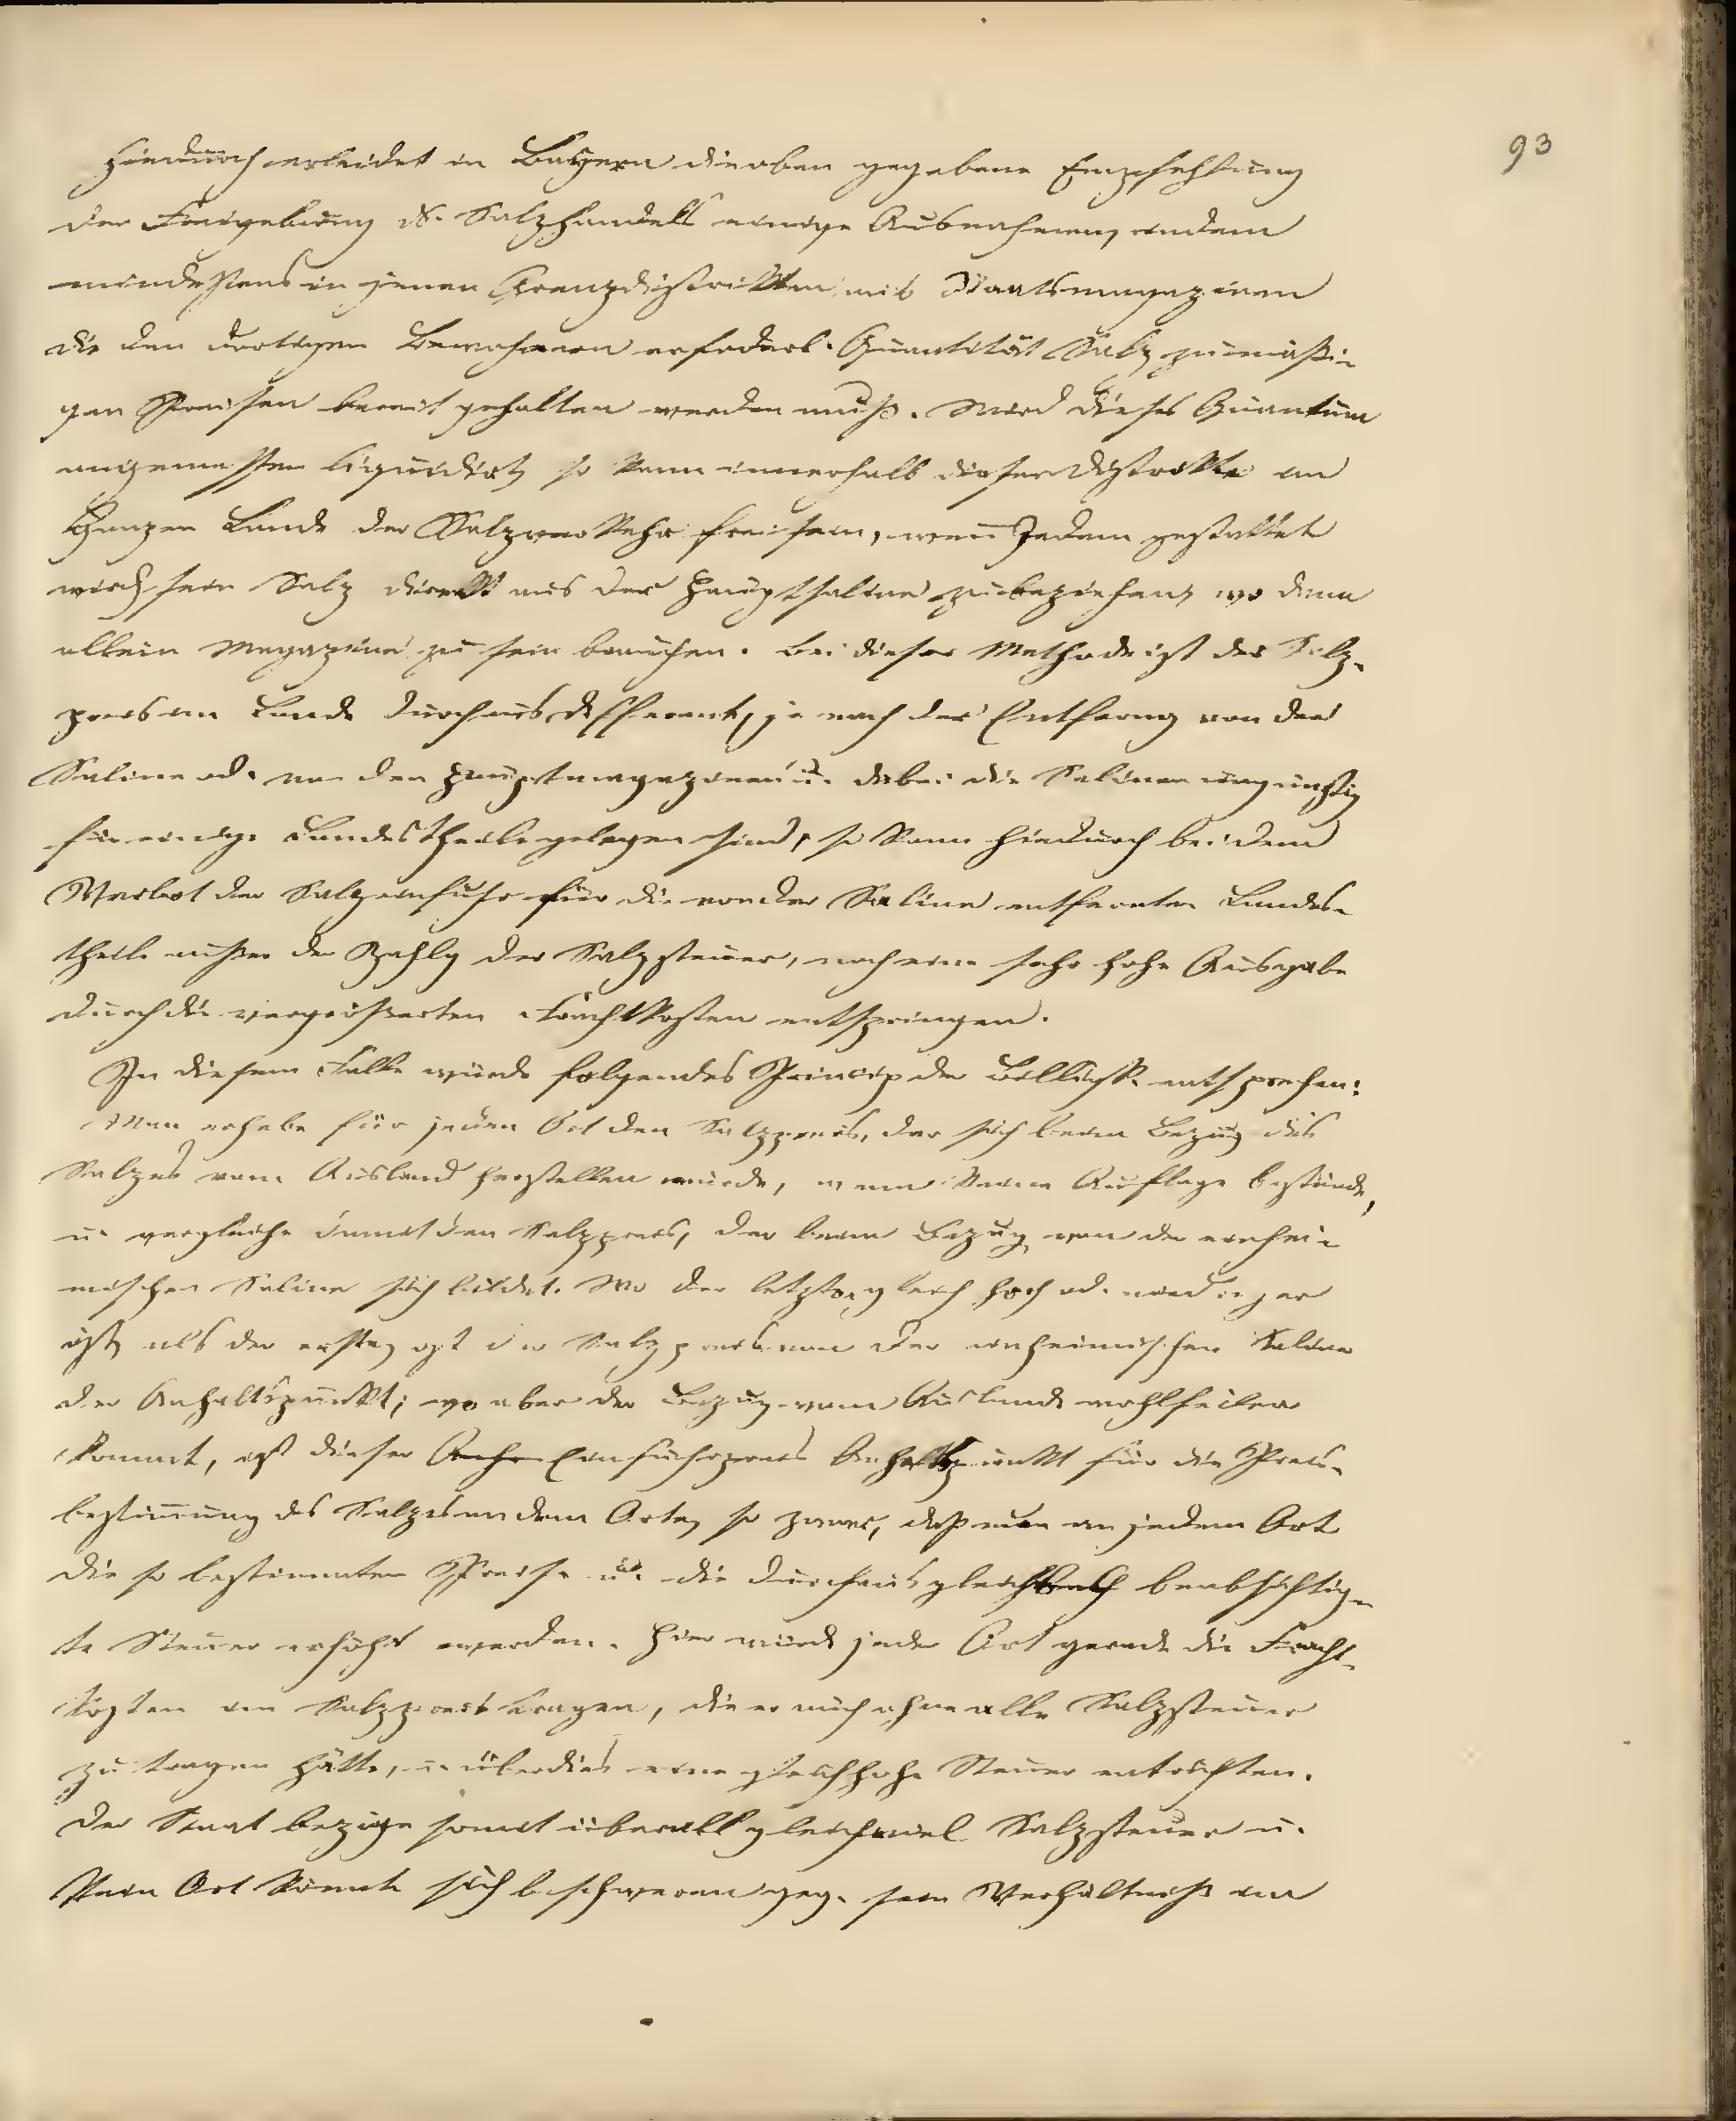 93
Hiedurch erleidet in Bayern die oben gegebene Empfehlung
der Freigebung ds. Salzhandels einige Ausnahmen, indem
mindestens in jenen Grenzdistrikten mit Staatsmagazinen
die den dortigen Bewohnern erforderl. Quantität Salz zu mäßi-
gen Preisen bereit gehalten werden muß. Wird dieses Quantum
angemessen liquidirt, so kann innerhalb dieser Distrikte im
Ganzen Lande der Salzverkehr frei sein, wenn Jedem gestattet
wird, sein Salz direkt aus der Hauptsaline zu beziehen, wo dann
allein Magazine zu sein brauchen. Bei dieser Methode ist der Salz-
preis im Lande durchaus different, je nach der Entferng von der
Saline od. von den Hauptmagazinen u. dabei die Salinen ungünstig
für einige Landestheile gelegen sind, so kann hiedurch bei dem
Verbot der Salzeinfuhr für die von der Saline entfernten Landes-
theile außer der Zahlg der Salzsteuer, noch eine sehr hohe Ausgabe
durch die vergrößerten Frachtkosten entspringen.
In diesem Falle würde folgendes Princip der Billigk. entsprechen:
Man erhebe für jeden Ort den Salzpreis, der sich beim Bezug des
Salzes vom Ausland herstellen würde, wenn keine Auflage bestünde,
u. vergleiche damit den Salzpreis, der beim Bezug von der einhei-
mischen Saline sich bildet. Wo der letzte gleich hoch od. niedriger
ist, als der erste, ist der Salzpreis von der einheimischen Saline
der Anhaltspunkt; wo aber der Bezug vom Auslande wohlfeiler
kommt, ist dieser Einfuhrpreis Anhaltspunkt für die Preis-
bestimmung des Salzes an dem Orte, so zwar, daß nun an jedem Ort
die so bestimmten Preise um die durchaus gleich beabsichtig-
te Steuer erhöht werden. Hier würde jeder Ort gerade die Fracht-
kosten im Salzpreis tragen, die er auch ohne alle Salzsteuer
zu tragen hätte, u. überdies eine gleich hohe Steuer entrichten.
Der Staat bezöge somit überall gleichviel Salzsteuer u.
kein Ort könnte sich beschweren geg. sein Verhältniß im